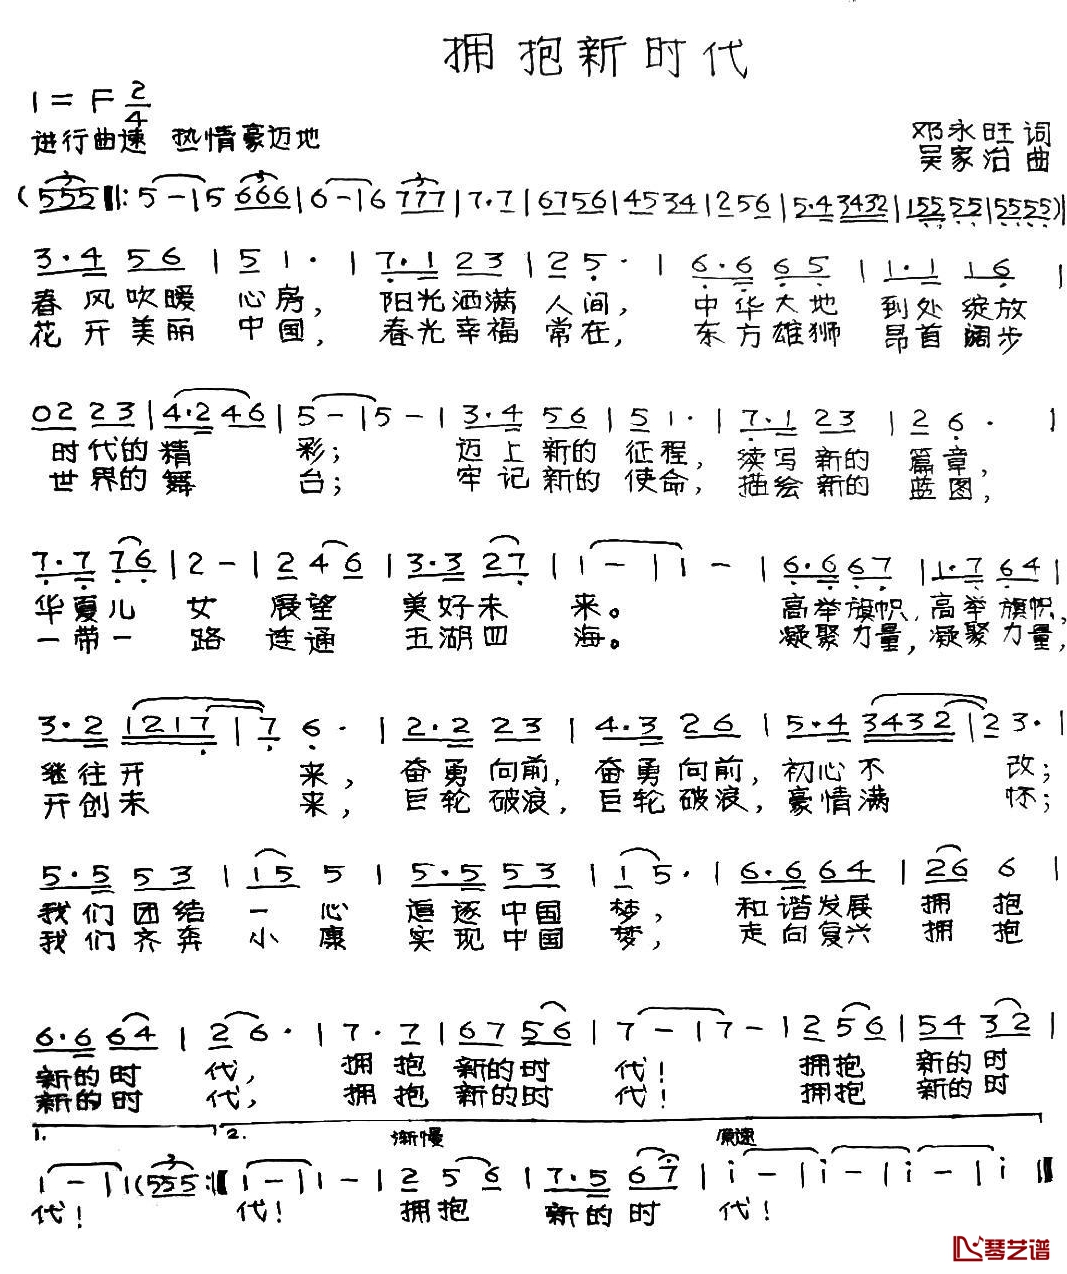 拥抱新时代
1=F 2/4
进行曲速 热情豪迈地
邓永旺 词
吴家治 曲
(555 ‖: 5 – | 5 666 | 6 – | 6 777 | 7·7 | 6756 | 4534 | 256 | 5·4 3432 | 155 55 | 5555) |
3·4 56 | 5 1· | 7·1 23 | 2 5· | 6·6 65 | 1·1 16 |
春风吹暖 心房, 阳光洒满 人间, 中华大地 到处绽放
花开美丽 中国, 春光幸福 常在, 东方雄狮 昂首阔步
02 23 | 4·2 46 | 5 – | 5 – | 3·4 56 | 5 1· | 7·1 23 | 2 6· |
时代的精 彩; 迈上新的 征程, 续写新的 篇章,
世界的舞 台; 牢记新的 使命, 描绘新的 蓝图,
7·7 76 | 2 – | 2 4 6 | 3·3 27 | 1 – | 1 – | 6·6 67 | 1·7 64 |
华夏儿 女 展望 美好未 来。 高举旗帜, 高举旗帜,
一带一 路 连通 五湖四 海。 凝聚力量, 凝聚力量,
3·2 1217 | 7 6· | 2·2 23 | 4·3 26 | 5·4 3432 | 2 3· |
继往开 来, 奋勇向前, 奋勇向前, 初心不 改;
开创未 来, 巨轮破浪, 巨轮破浪, 豪情满 怀;
5·5 53 | 15 5 | 5·5 53 | 1 5· | 6·6 64 | 26 6 |
我们团结 一心 追逐中国 梦, 和谐发展 拥抱
我们齐奔 小康 实现中国 梦, 走向复兴 拥抱
6·6 64 | 2 6· | 7·7 | 67 56 | 7 – | 7 – | 2 5 6 | 54 32 |
新的时 代, 拥抱 新的时 代! 拥抱 新的时
新的时 代, 拥抱 新的时 代! 拥抱 新的时
1. 2. 渐慢 原速
1 – | 1 (555 :‖ 1 – | 1 – | 2 5 6 | 7·5 67 | i – | i – | i – | i ‖
代! 代! 拥抱 新的时 代!
琴艺谱